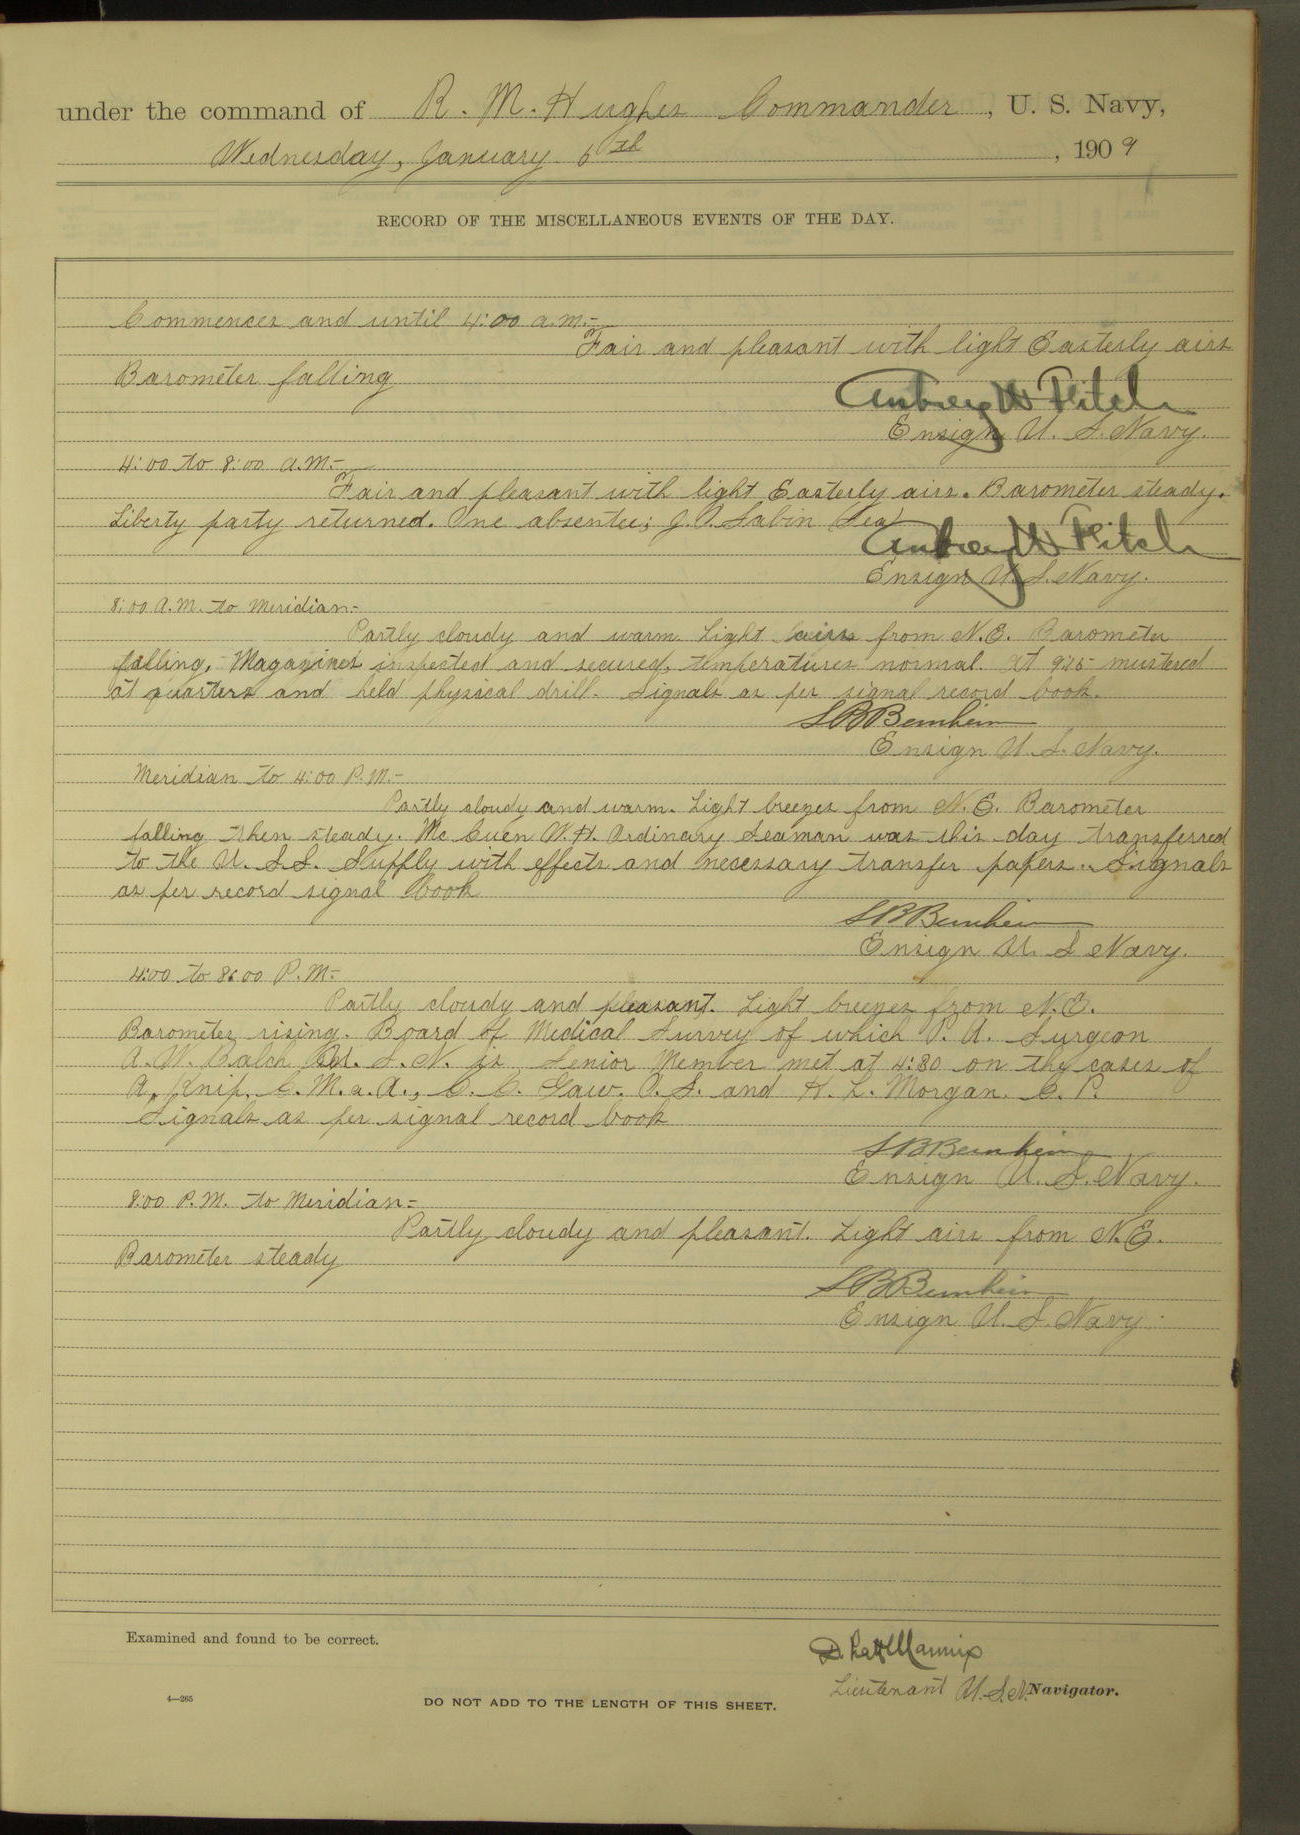 under the command of R. M. Hughes Commander, U. S. Navy,
Wednesday, January 6th, 1909
RECORD OF THE MISCELLANEOUS EVENTS OF THE DAY.
Commences and until 4:00 a.m:-
Fair and pleasant with light Easterly airs
Barometer falling
Aubrey W Fitch
Ensign U. S. Navy.
4:00 to 8:00 a.m:-
Fair and pleasant with light Easterly airs. Barometer steady.
Liberty party returned. One absentee; J. O. Sabin (Sea)
Aubrey W Fitch
Ensign U. S. Navy.
8:00 A.M. to Meridian:-
Partly cloudy and warm. Light airs from N.E. Barometer
falling. Magazines inspected and secured, temperatures normal. At 9:25 mustered
at quarters and held physical drill. Signals as per signal record book.
S B Bernheim
Ensign U. S. Navy.
Meridian to 4:00 P.M:-
Partly cloudy and warm. Light breezes from N.E. Barometer
falling then steady. Mc Cuen W. H. Ordinary Seaman was this day transferred
to the U. S. S. Supply with effects and necessary transfer papers. Signals
as per record signal book
S B Bernheim
Ensign U. S Navy.
4:00 to 8:00 P.M:-
Partly cloudy and pleasant. Light breezes from N.E.
Barometer rising. Board of Medical Survey of which P. A. Surgeon
A. W. Balch U. S. N. is Senior Member met at 4:30 on the cases of
A. Knip, C. M. a. A., C. C. Gaw. O. S. and H. L. Morgan. C. P.
Signals as per signal record book
S B Bernheim
Ensign U. S. Navy.
8:00 P.M. to Meridian:-
Partly cloudy and pleasant. Light airs from N.E.
Barometer steady
S B Bernheim
Ensign U. S. Navy.
Examined and found to be correct.
D. Pratt Mannix
Lieutenant U.S.N. Navigator.
4—265
DO NOT ADD TO THE LENGTH OF THIS SHEET.